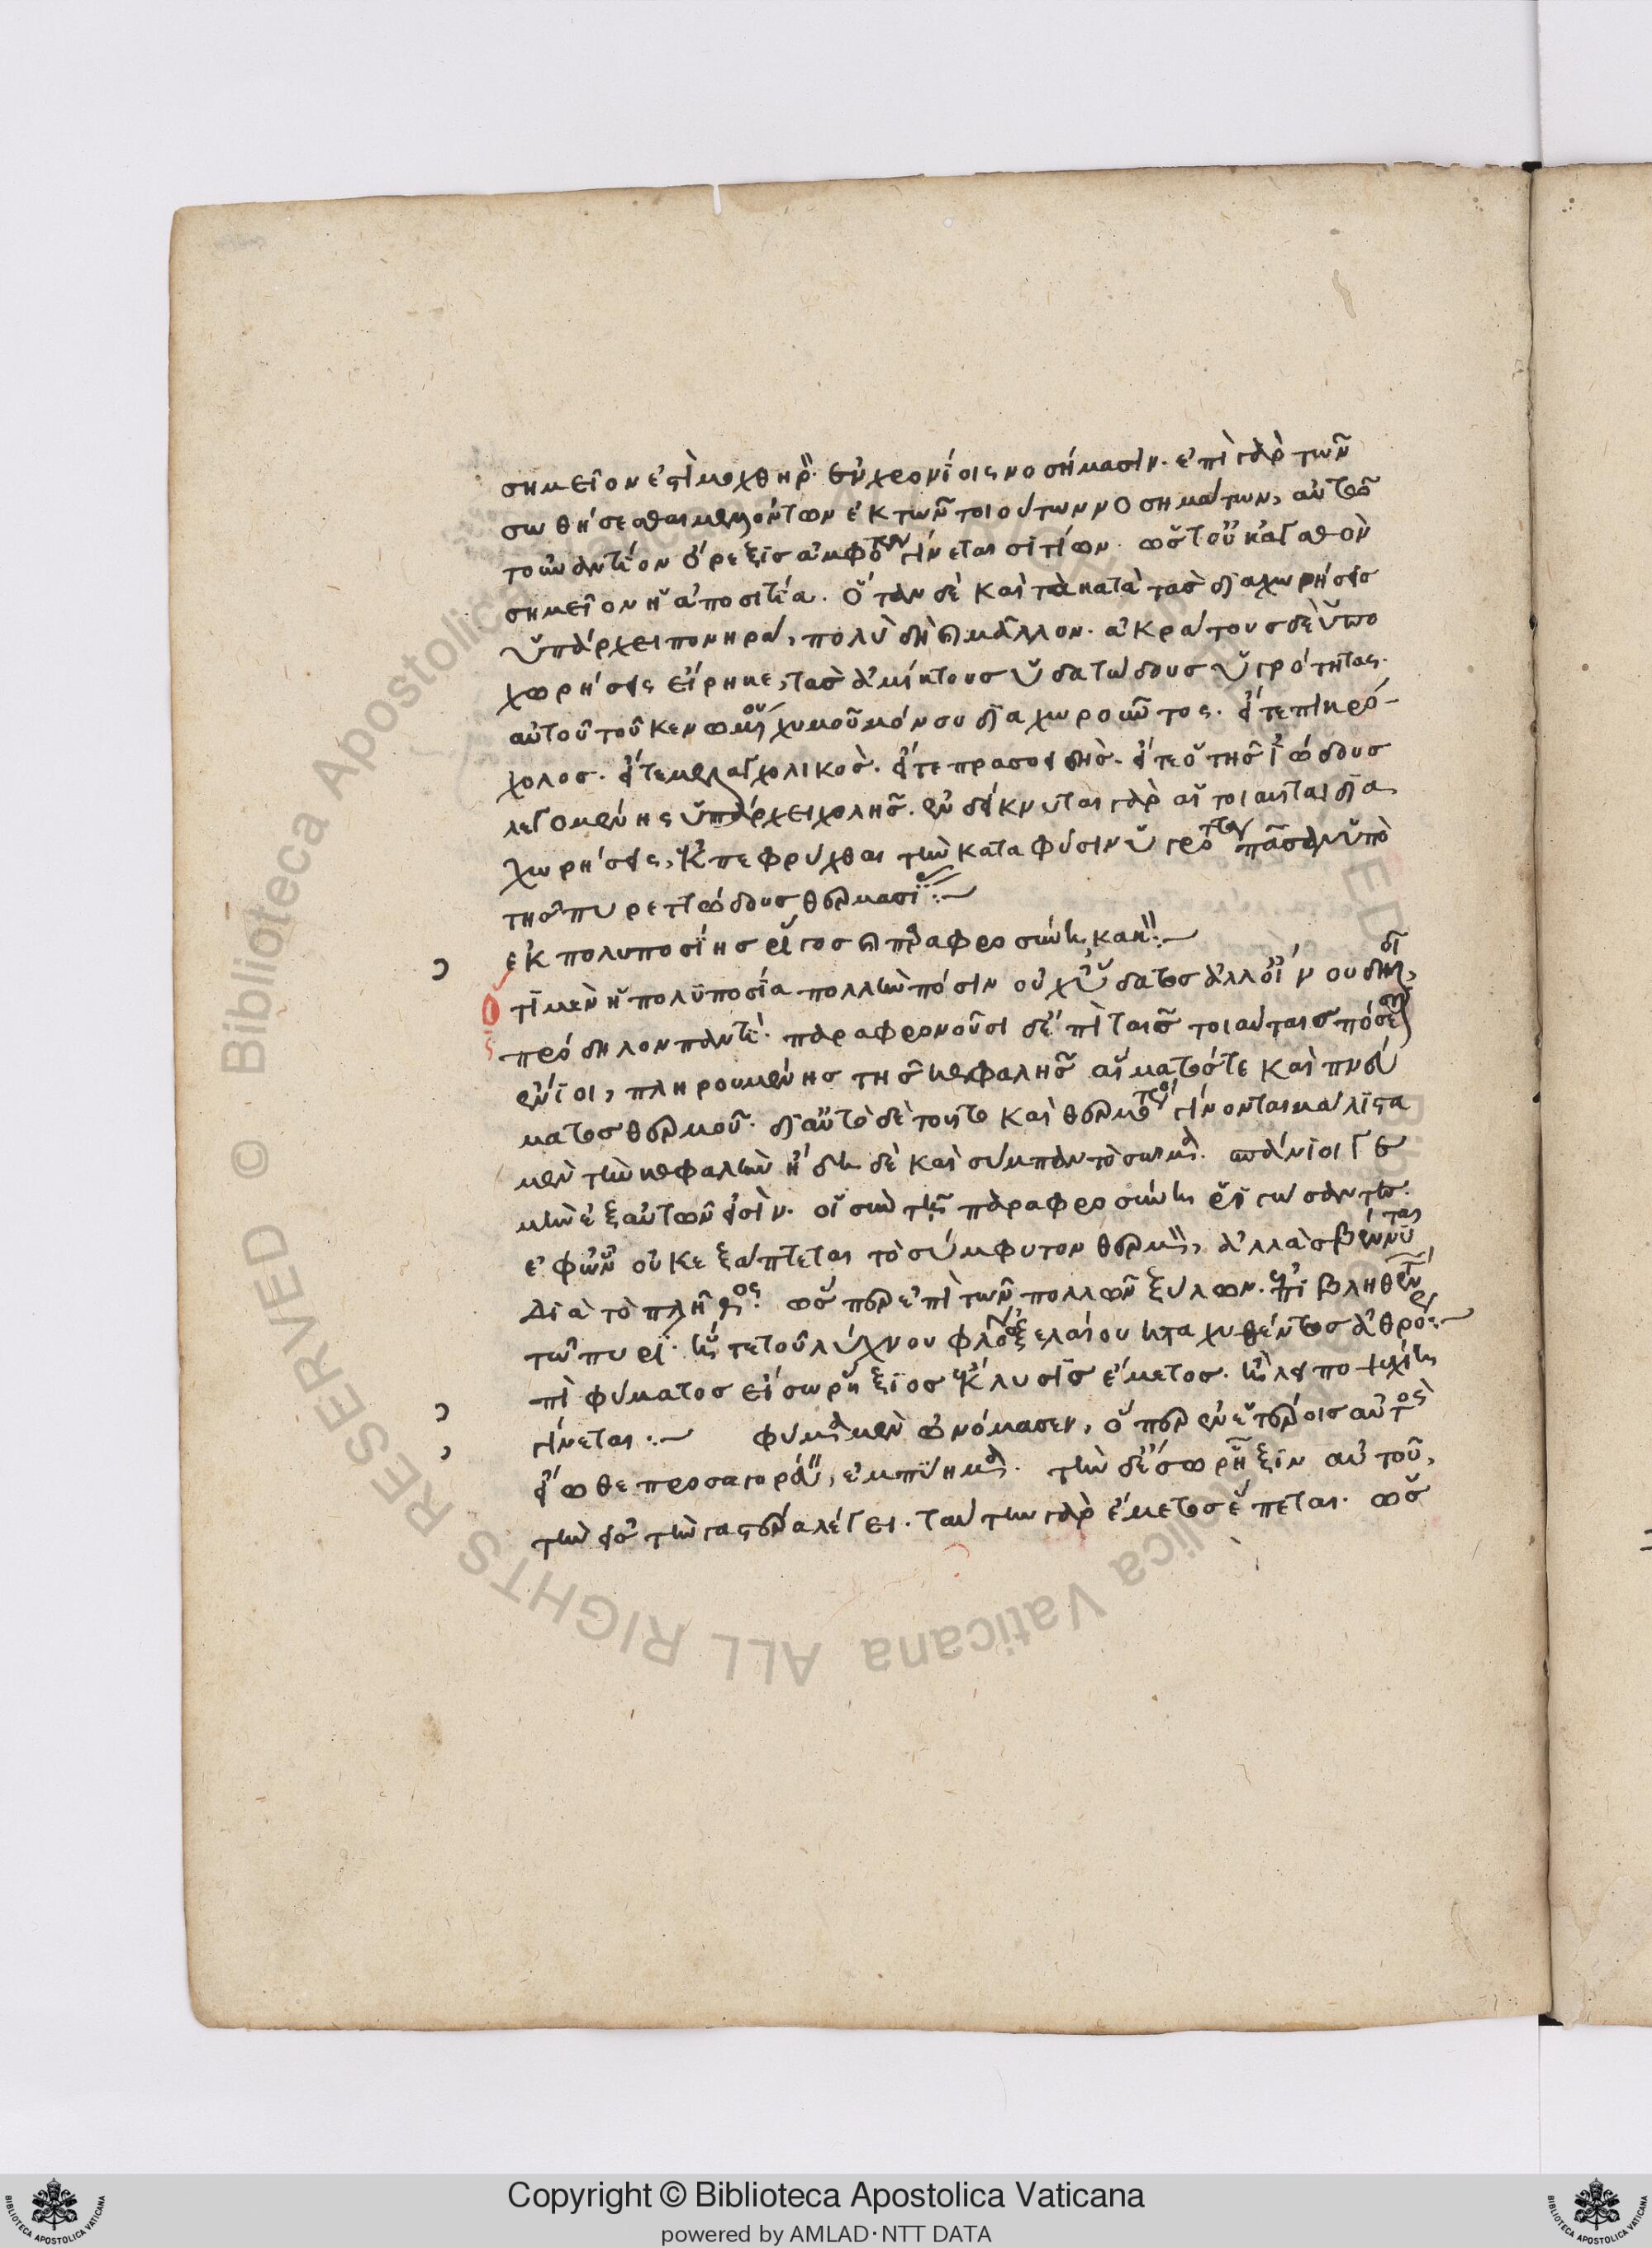 σημεῖον ἐστὶ μοχθηρ. ἐν χρονίοις νοσήμασιν. ἐπὶ γὰρ τῶν
σωθήσεσθαι μελλόντων ἐκ τῶν τοιούτων νοσημάτων, αὐτὸ
τοὐναντίον ὄρεξις ἀμφοτέρων γίνεται σιτίων. ὥστ οὐκ ἀγαθὸν
σημεῖον ἡ ἀποσιτία. ὅταν δὲ καὶ τὰ κατὰ τὰς διαχωρήσεις
ὑπάρχει πονηρά, πολὺ δὴ μᾶλλον. ἀκράτους δὲ ὑπο
χωρήσεις εἴρηκε, τὰς ἀμίκτους ὑδατώδους ὑγρότητος.
αὐτοῦ τοῦ κενουμένου χυμοῦ μόνου διαχωροῦντος. εἴτε πικρό-
χολος. εἴτε μελαγχολικὸς. εἴτε πρασοειδὴς. εἴτε ὁ τῆς ἰώδους
λεγομένης ὑπάρχει χολῆς. ἐνδείκνυται γὰρ αἱ τοιαῦται δια
χωρήσεις, ἐκπεφρύχθαι τὴν κατα φύσιν ὑγρότητα πᾶσαν ὑπὸ
τῆς πυρετώδους θερμασί :
ἐκ πολυποσίης ῥῖγος παραφροσύνη κακ :
τί μὲν ἡ πολυποσία πολλὴν πόσιν οὐχ ὕδατος ἀλλ οἴνου δηλ
πρόδηλον παντί. παραφρονοῦσι δ ἐπὶ ταῖς τοιαύταις πόσεσιν
ἔνιοι, πληρουμένης τῆς κεφαλῆς αἵματός τε καὶ πνεύ
ματος θερμοῦ. δι αὐτὸ δὲ τοῦτο καὶ θερμότεροι γίνονται μάλιστα
μὲν τὴν κεφαλὴν ἤδη δὲ καὶ σύμπαν τὸ σῶμα. σπάνιοι γε
μὴν ἐξ αὐτῶν εἰσὶν. οἳ σὺν τῇ παραφροσύνῃ ῥιγώσαντες.
ἐφ ὧν οὐκ ἐξάπτεται τὸ σύμφυτον θερμ, ἀλλὰ σβέννυται
διὰ τὸ πλῆθος. ὥσπερ ἐπὶ τῶν πολλῶν ξύλων. ἐπιβληθέντων
τῷ πυρί. καὶ τε τοῦ λύχνου φλὸξ ἐλαίου καταχυθέντος ἀθρό :
πὶ φύματος εἴσω ῥήξιος ἔκλυσις ἔμετος. καὶ λειποψυχίη
γίνεται : φύμα μὲν ὠνόμασεν, ὅπερ ἐν ἑτέροις αὐτὸς
εἴωθε προσαγορ, ἐμπύημα. τὴν δ εἴσω ῥῆξιν αὐτοῦ,
τὴν εἰς τὴν γαστέρα λέγει. ταύτῃ γὰρ ἔμετος ἕπεται. ὡς
Copyright © Biblioteca Apostolica Vaticana
powered by AMLAD·NTT DATA